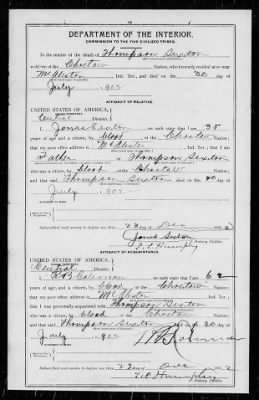 DEPARTMENT OF THE INTERIOR.
COMMISSION TO THE FIVE CIVILIZED TRIBES.
In the matter of the death of Thompson Sexton
a citizen of the Choctaw Nation, who formerly resided at or near
McAlester, Ind. Ter., and died on the 20 day of
July, 1902
AFFIDAVIT OF RELATIVE.
UNITED STATES OF AMERICA,
Central District.
I, Jonas Sexton, on oath state that I am 38
years of age and a citizen, by blood, of the Choctaw Nation;
that my post office address is McAlester, Ind. Ter.; that I am
Father of Thompson Sexton
who was a citizen, by blood, of the Choctaw Nation;
and that said Thompson Sexton died on the 20 day of
July, 1902
Jonas Sexton
Subscribed and sworn to before me this 22 day of Dec 1902
Notary Public.
AFFIDAVIT OF ACQUAINTANCE.
UNITED STATES OF AMERICA,
Central District.
I, Coleman, on oath state that I am 62
years of age, and a citizen by blood of the Choctaw Nation;
that my post office address is McAlester, Ind. Ter.;
that I was personally acquainted with Thompson Sexton
who was a citizen, by blood, of the Choctaw Nation;
and that said Thompson Sexton died on the 20 day of
July, 1902
Subscribed and sworn to before me this 22 day of Dec 1902
Notary Public.